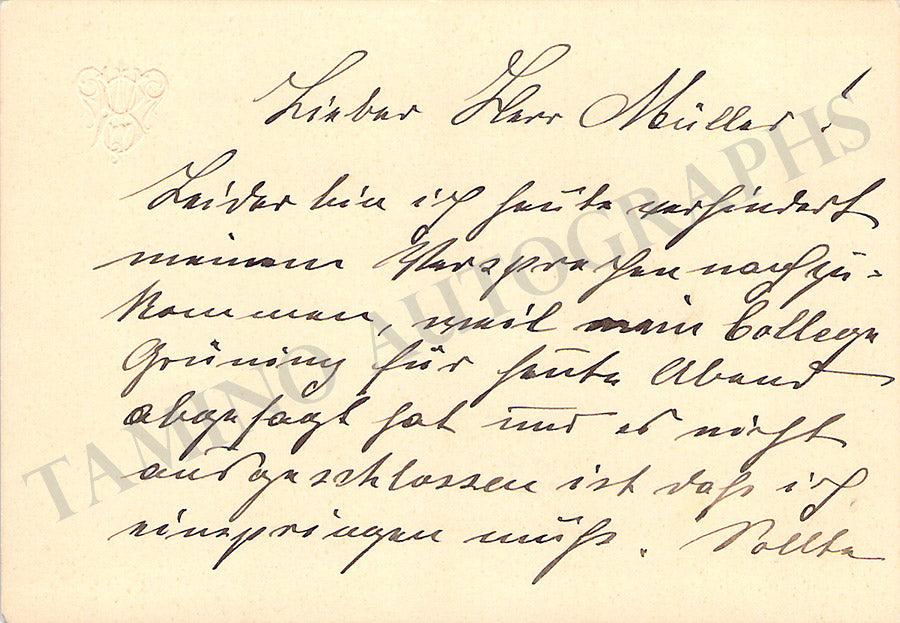 Lieber Herr Müller!
Leider bin ich heute verhindert
meinem Versprechen nachzu-
kommen, weil mein College
Grüning für heute Abend
abgesagt hat und es nicht
ausgeschlossen ist daß ich
einspringen muß. Sollte
TAMINO AUTOGRAPHS